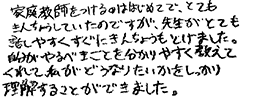 家庭教師をつけるのははじめてで、とても
きんちょうしていたのですが、先生がとても
話しやすくすぐにきんちょうもとけました。
自分がやるべきことを分かりやすく教えて
くれて、私がどうなりたいかをしっかり
理解することができました。